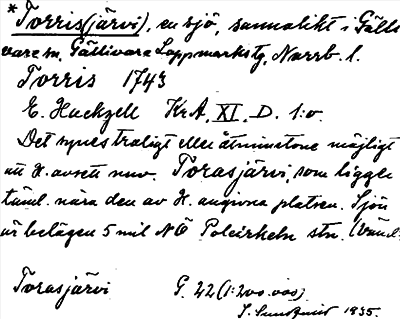 *Torris(järvi), en sjö, sannolikt i Gälli-
vare sn, Gällivare Lappmarks tg, Norrb. l.
Torris 1743
E. Hackzell Kr.A, XI, D. 1:o.
Det synes troligt eller åtminstone möjligt
att H. avsett nuv. Torasjärvi, som ligger
täml. nära den av H. angivna platsen. Sjön
är belägen 5 mil NÖ Polcirkeln stn.
Torasjärvi G. 22 (1:200.000)
S. Sundquist 1935.